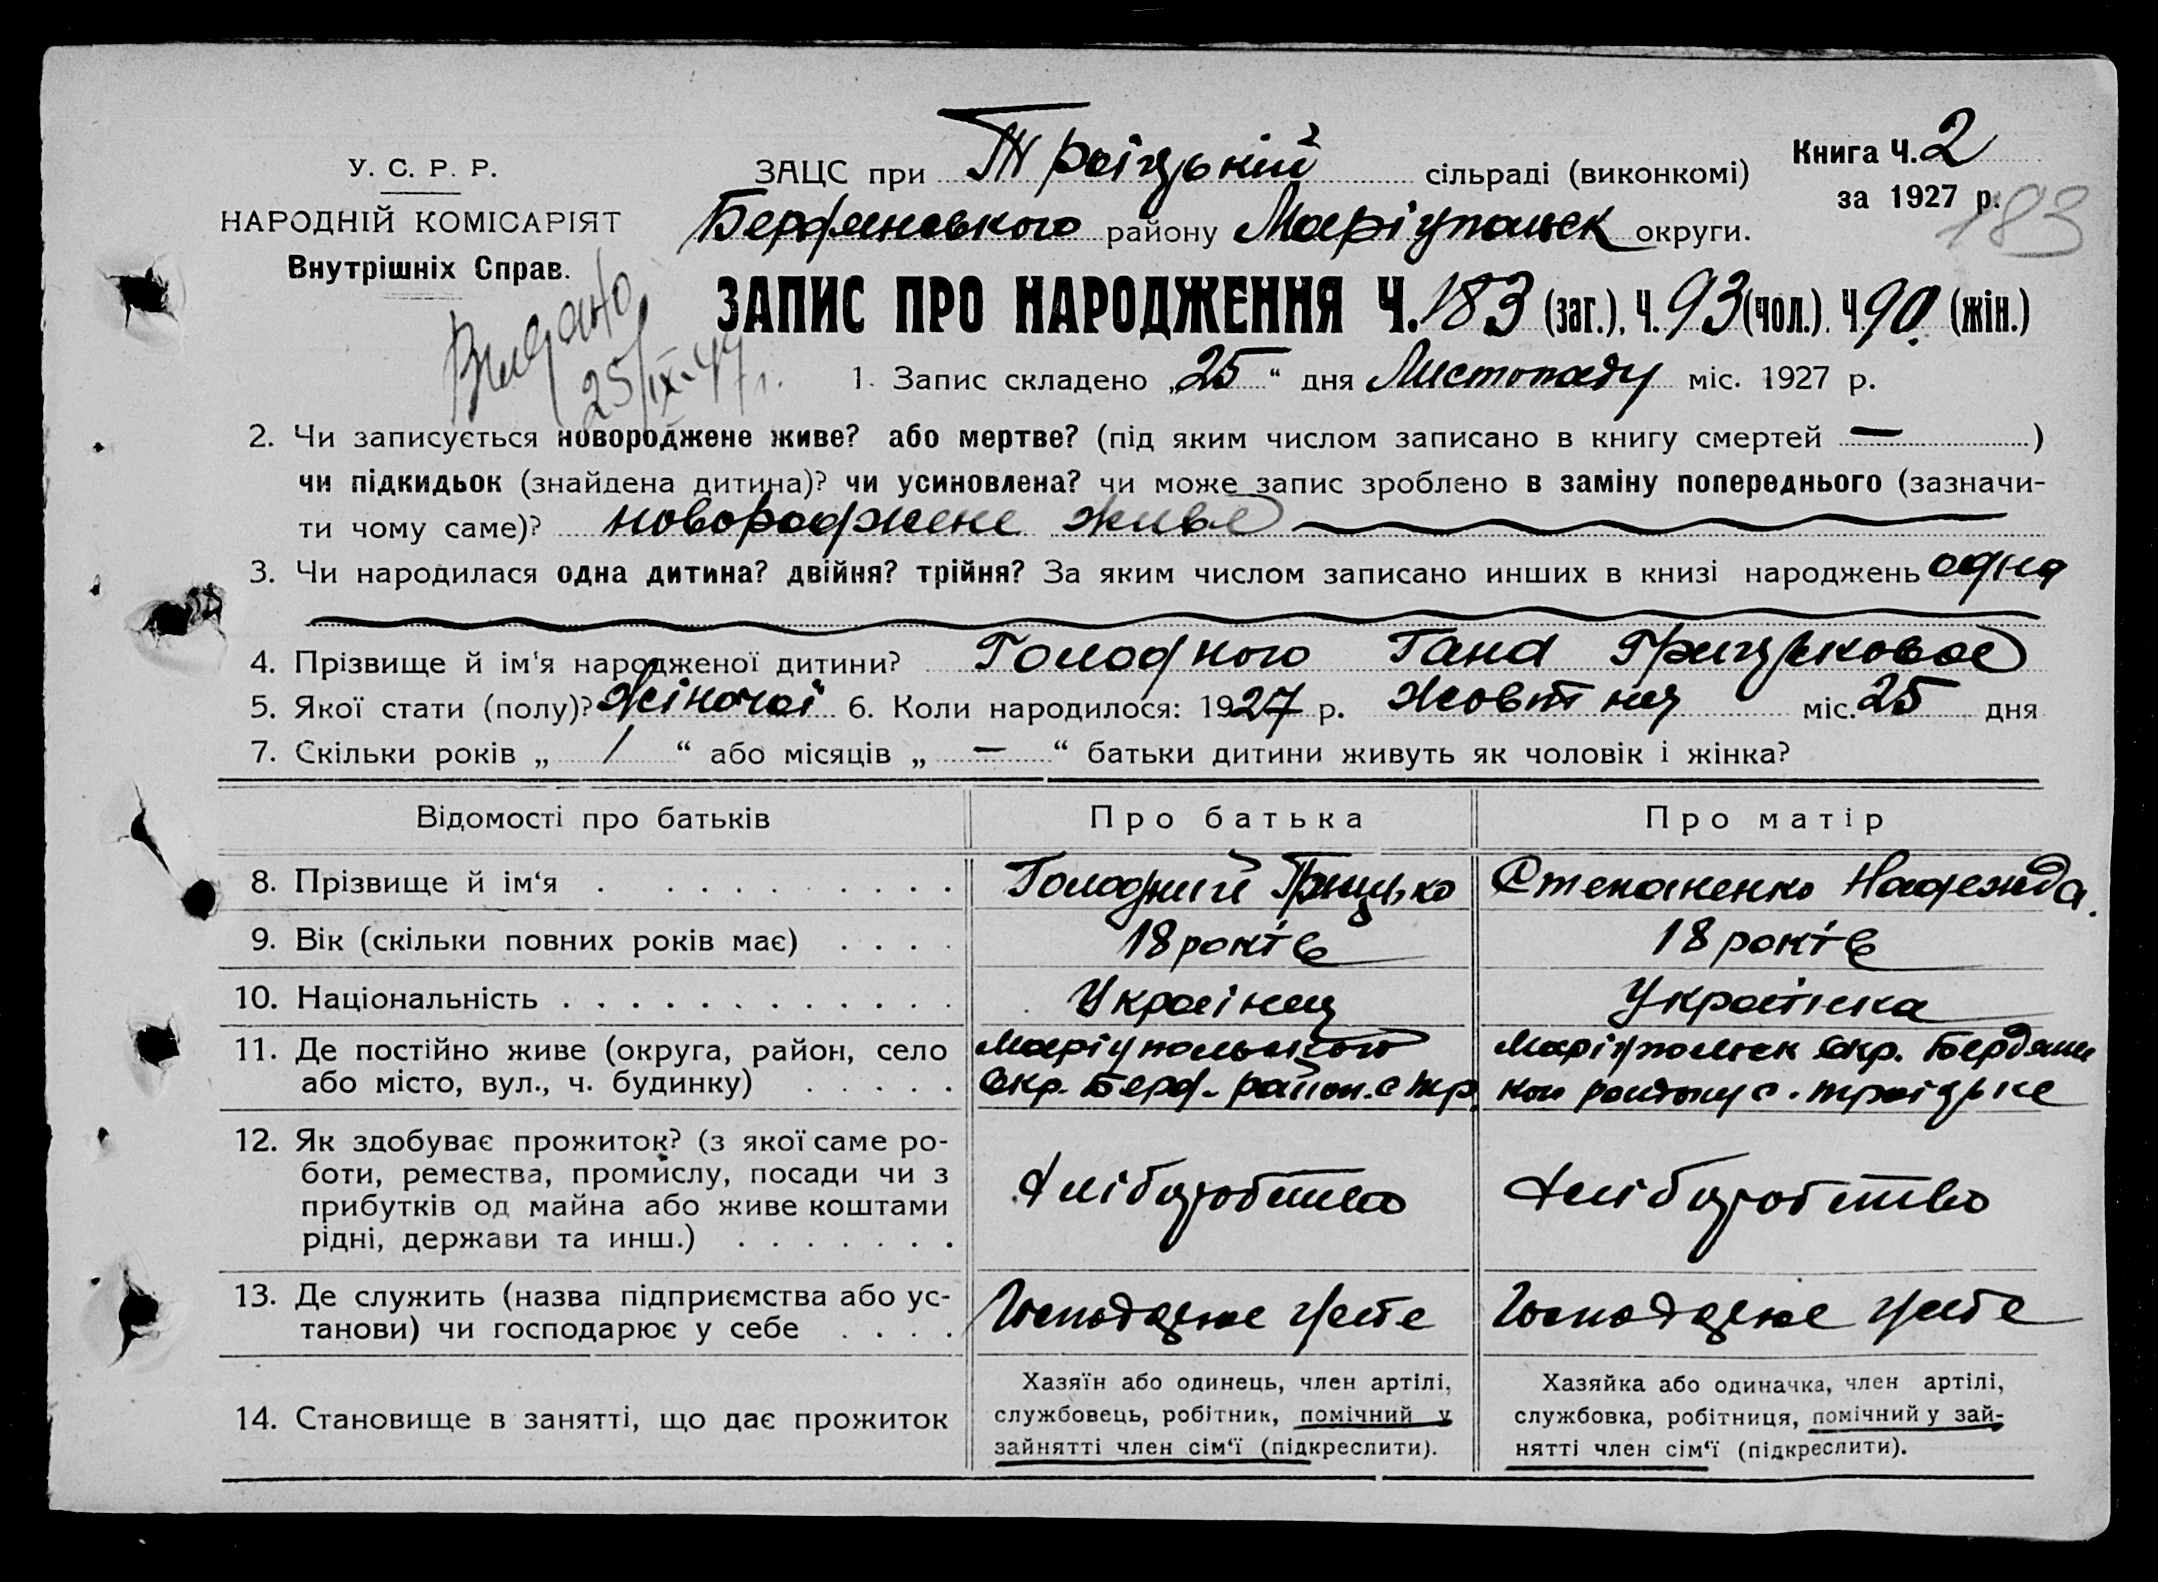 У. С. Р. Р.
НАРОДНІЙ КОМІСАРІЯТ
Внутрішніх Справ.
Видано
25/IX-47 г.
ЗАЦС при Троіцькій сільраді (виконкомі)
Бердянського району Маріупольськ округи.
Книга Ч. 2
за 1927 р.
183
ЗАПИС ПРО НАРОДЖЕННЯ Ч. 183 (заг.), Ч. 93 (чол.). Ч. 90. (жін.)
1. Запис складено „25“ дня Листопаду міс. 1927 р.
2. Чи записується новороджене живе? або мертве? (під яким числом записано в книгу смертей — )
чи підкидьок (знайдена дитина)? чи усиновлена? чи може запис зроблено в заміну попереднього (зазначи-
ти чому саме)? новороджене живе
3. Чи народилася одна дитина? двійня? трійня? За яким числом записано инших в книзі народжень одна
4. Прізвище й ім'я народженої дитини? Голодного Гана Грицькова
5. Якої стати (полу)? жіночоі 6. Коли народилося: 1927 р. Жовтня міс. 25 дня
7. Скільки років „ / “ або місяців „ — “ батьки дитини живуть як чоловік і жінка?
Відомості про батьків Про батька Про матір
8. Прізвище й ім'я Голодний Грицько Степаненко Надежда.
9. Вік (скільки повних років має) 18 років 18 років
10. Національність Украінец Украінка
11. Де постійно живе (округа, район, село Маріупольского Маріупольск окр. Бердянс
або місто, вул., ч. будинку) окр. Берд. район. с Тр. кой району с. Троіцьке
12. Як здобуває прожиток? (з якої саме ро-
боти, ремества, промислу, посади чи з
прибутків од майна або живе коштами
рідні, держави та инш.) Хліборобство Хліборобство
13. Де служить (назва підприємства або ус-
танови) чи господарює у себе Господарює у себе Господарює у себе
14. Становище в занятті, що дає прожиток
Хазяїн або одинець, член артілі,
службовець, робітник, помічний у
зайнятті член сім'ї (підкреслити).
Хазяйка або одиначка, член артілі,
службовка, робітниця, помічний у зай-
нятті член сім'ї (підкреслити).